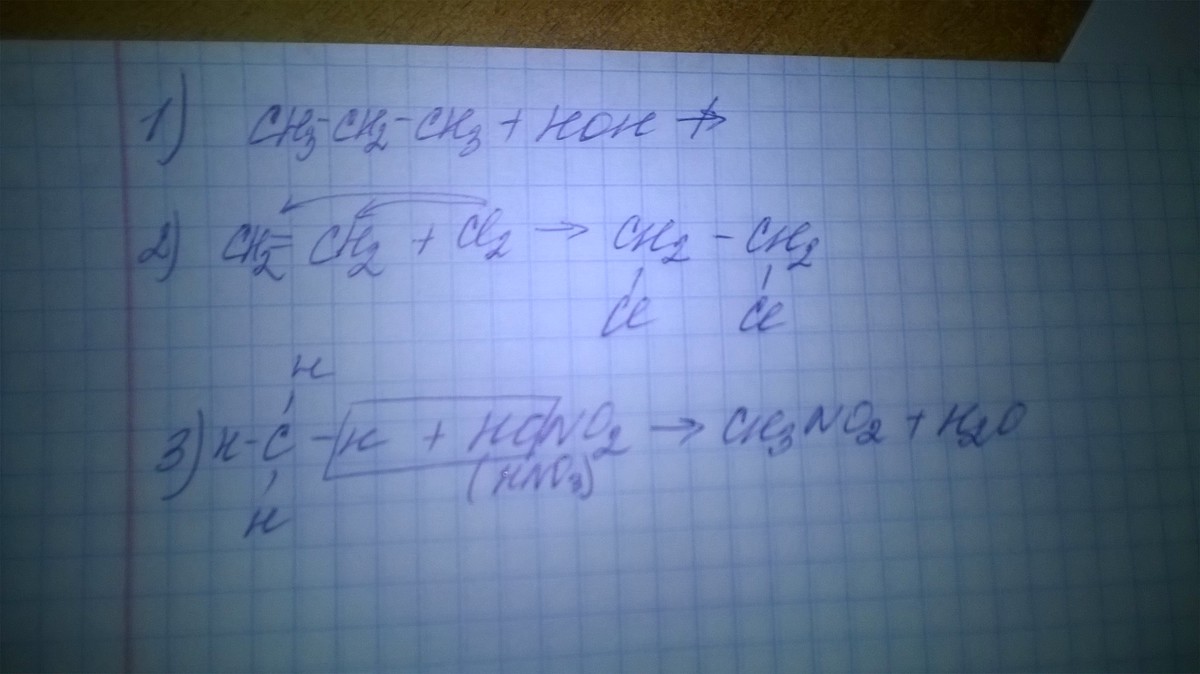 1) CH₃-CH₂-CH₃ + HOH ↛
2) CH₂=CH₂ + Cl₂ → CH₂-CH₂
Cl Cl
H
3) H-C-H + HONO₂ → CH₃NO₂ + H₂O
(HNO₃)
H